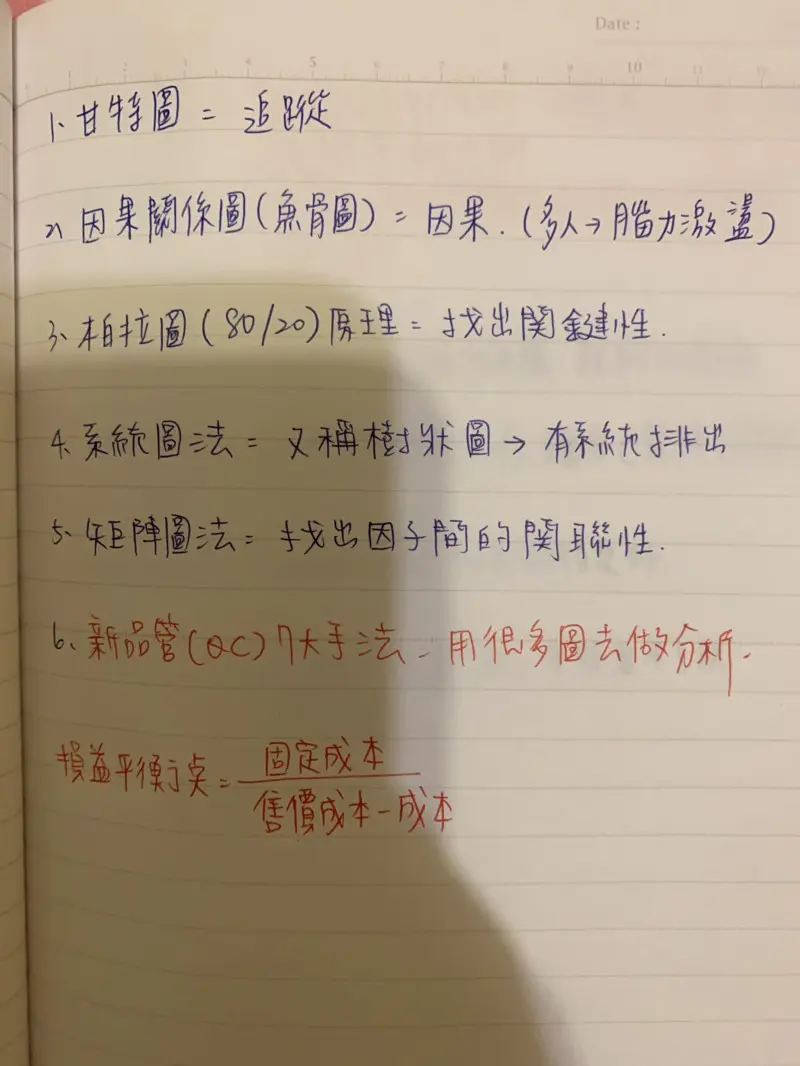 Date :
5 10 11
1、甘特圖 = 追蹤
2、因果關係圖(魚骨圖) = 因果.(多人→腦力激盪)
3、柏拉圖(80/20)原理 = 找出関鍵性.
4、系統圖法 = 又稱樹狀圖 → 有系統排出
5、矩陣圖法 = 找出因子間的関聯性.
6、新品管(QC)7大手法-用很多圖去做分析.
損益平衡点 = 固定成本
售價成本-成本